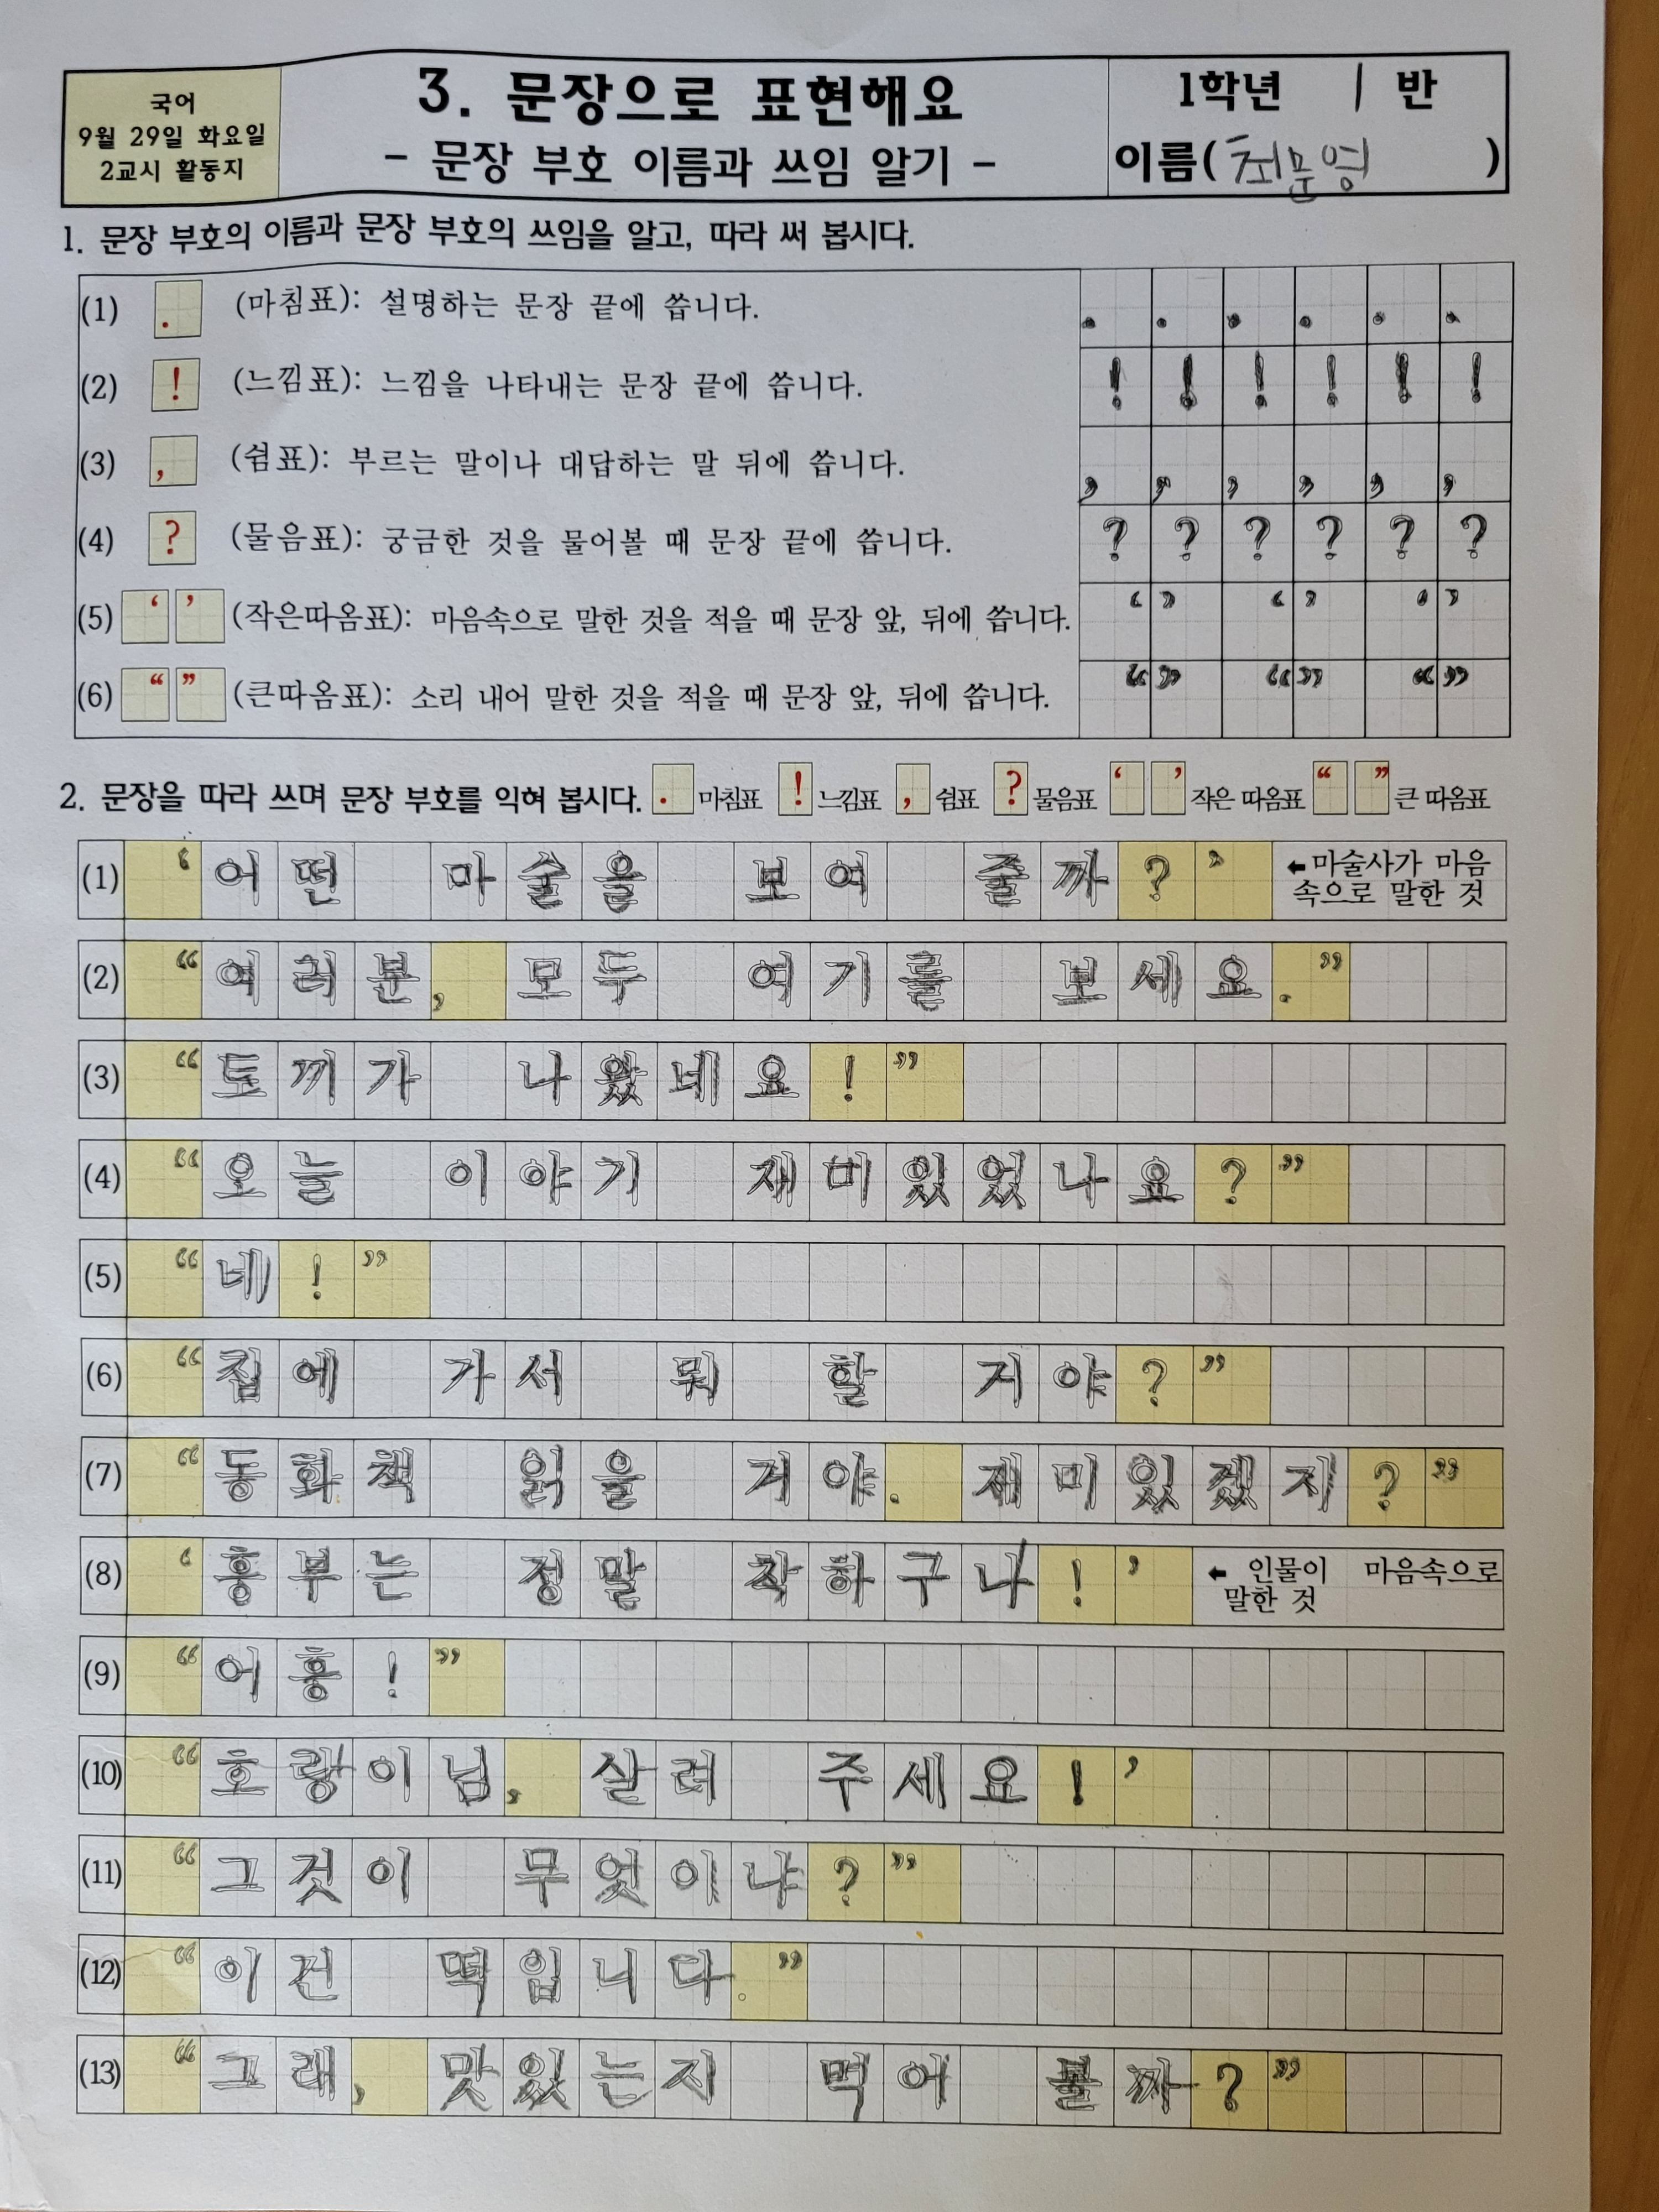 국어
9월 29일 화요일
2교시 활동지
3. 문장으로 표현해요
- 문장 부호 이름과 쓰임 알기 -
1학년 1 반
이름( 최문영 )
1. 문장 부호의 이름과 문장 부호의 쓰임을 알고, 따라 써 봅시다.
(1) . (마침표): 설명하는 문장 끝에 씁니다. . . . . . .
(2) ! (느낌표): 느낌을 나타내는 문장 끝에 씁니다. ! ! ! ! ! !
(3) , (쉼표): 부르는 말이나 대답하는 말 뒤에 씁니다. , , , , , ,
(4) ? (물음표): 궁금한 것을 물어볼 때 문장 끝에 씁니다. ? ? ? ? ? ?
(5) ‘ ’ (작은따옴표): 마음속으로 말한 것을 적을 때 문장 앞, 뒤에 씁니다. ‘ ’ ‘ ’ ‘ ’
(6) “ ” (큰따옴표): 소리 내어 말한 것을 적을 때 문장 앞, 뒤에 씁니다. “ ” “ ” “ ”
2. 문장을 따라 쓰며 문장 부호를 익혀 봅시다. . 마침표 ! 느낌표 , 쉼표 ? 물음표 ‘ ’ 작은 따옴표 “ ” 큰 따옴표
(1) ‘어떤 마술을 보여 줄까?’ ←마술사가 마음
속으로 말한 것
(2) “여러분, 모두 여기를 보세요.”
(3) “토끼가 나왔네요!”
(4) “오늘 이야기 재미있었나요?”
(5) “네!”
(6) “집에 가서 뭐 할 거야?”
(7) “동화책 읽을 거야. 재미있겠지?”
(8) ‘흥부는 정말 착하구나!’ ← 인물이 마음속으로
말한 것
(9) “어흥!”
(10) “호랑이님, 살려 주세요!’
(11) “그것이 무엇이냐?”
(12) “이건 떡입니다.”
(13) “그래, 맛있는지 먹어 볼까?”